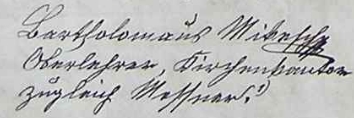 Bartholomäus Mikesche
Oberlehrer, Kirchenkantor
zugleich Messner.